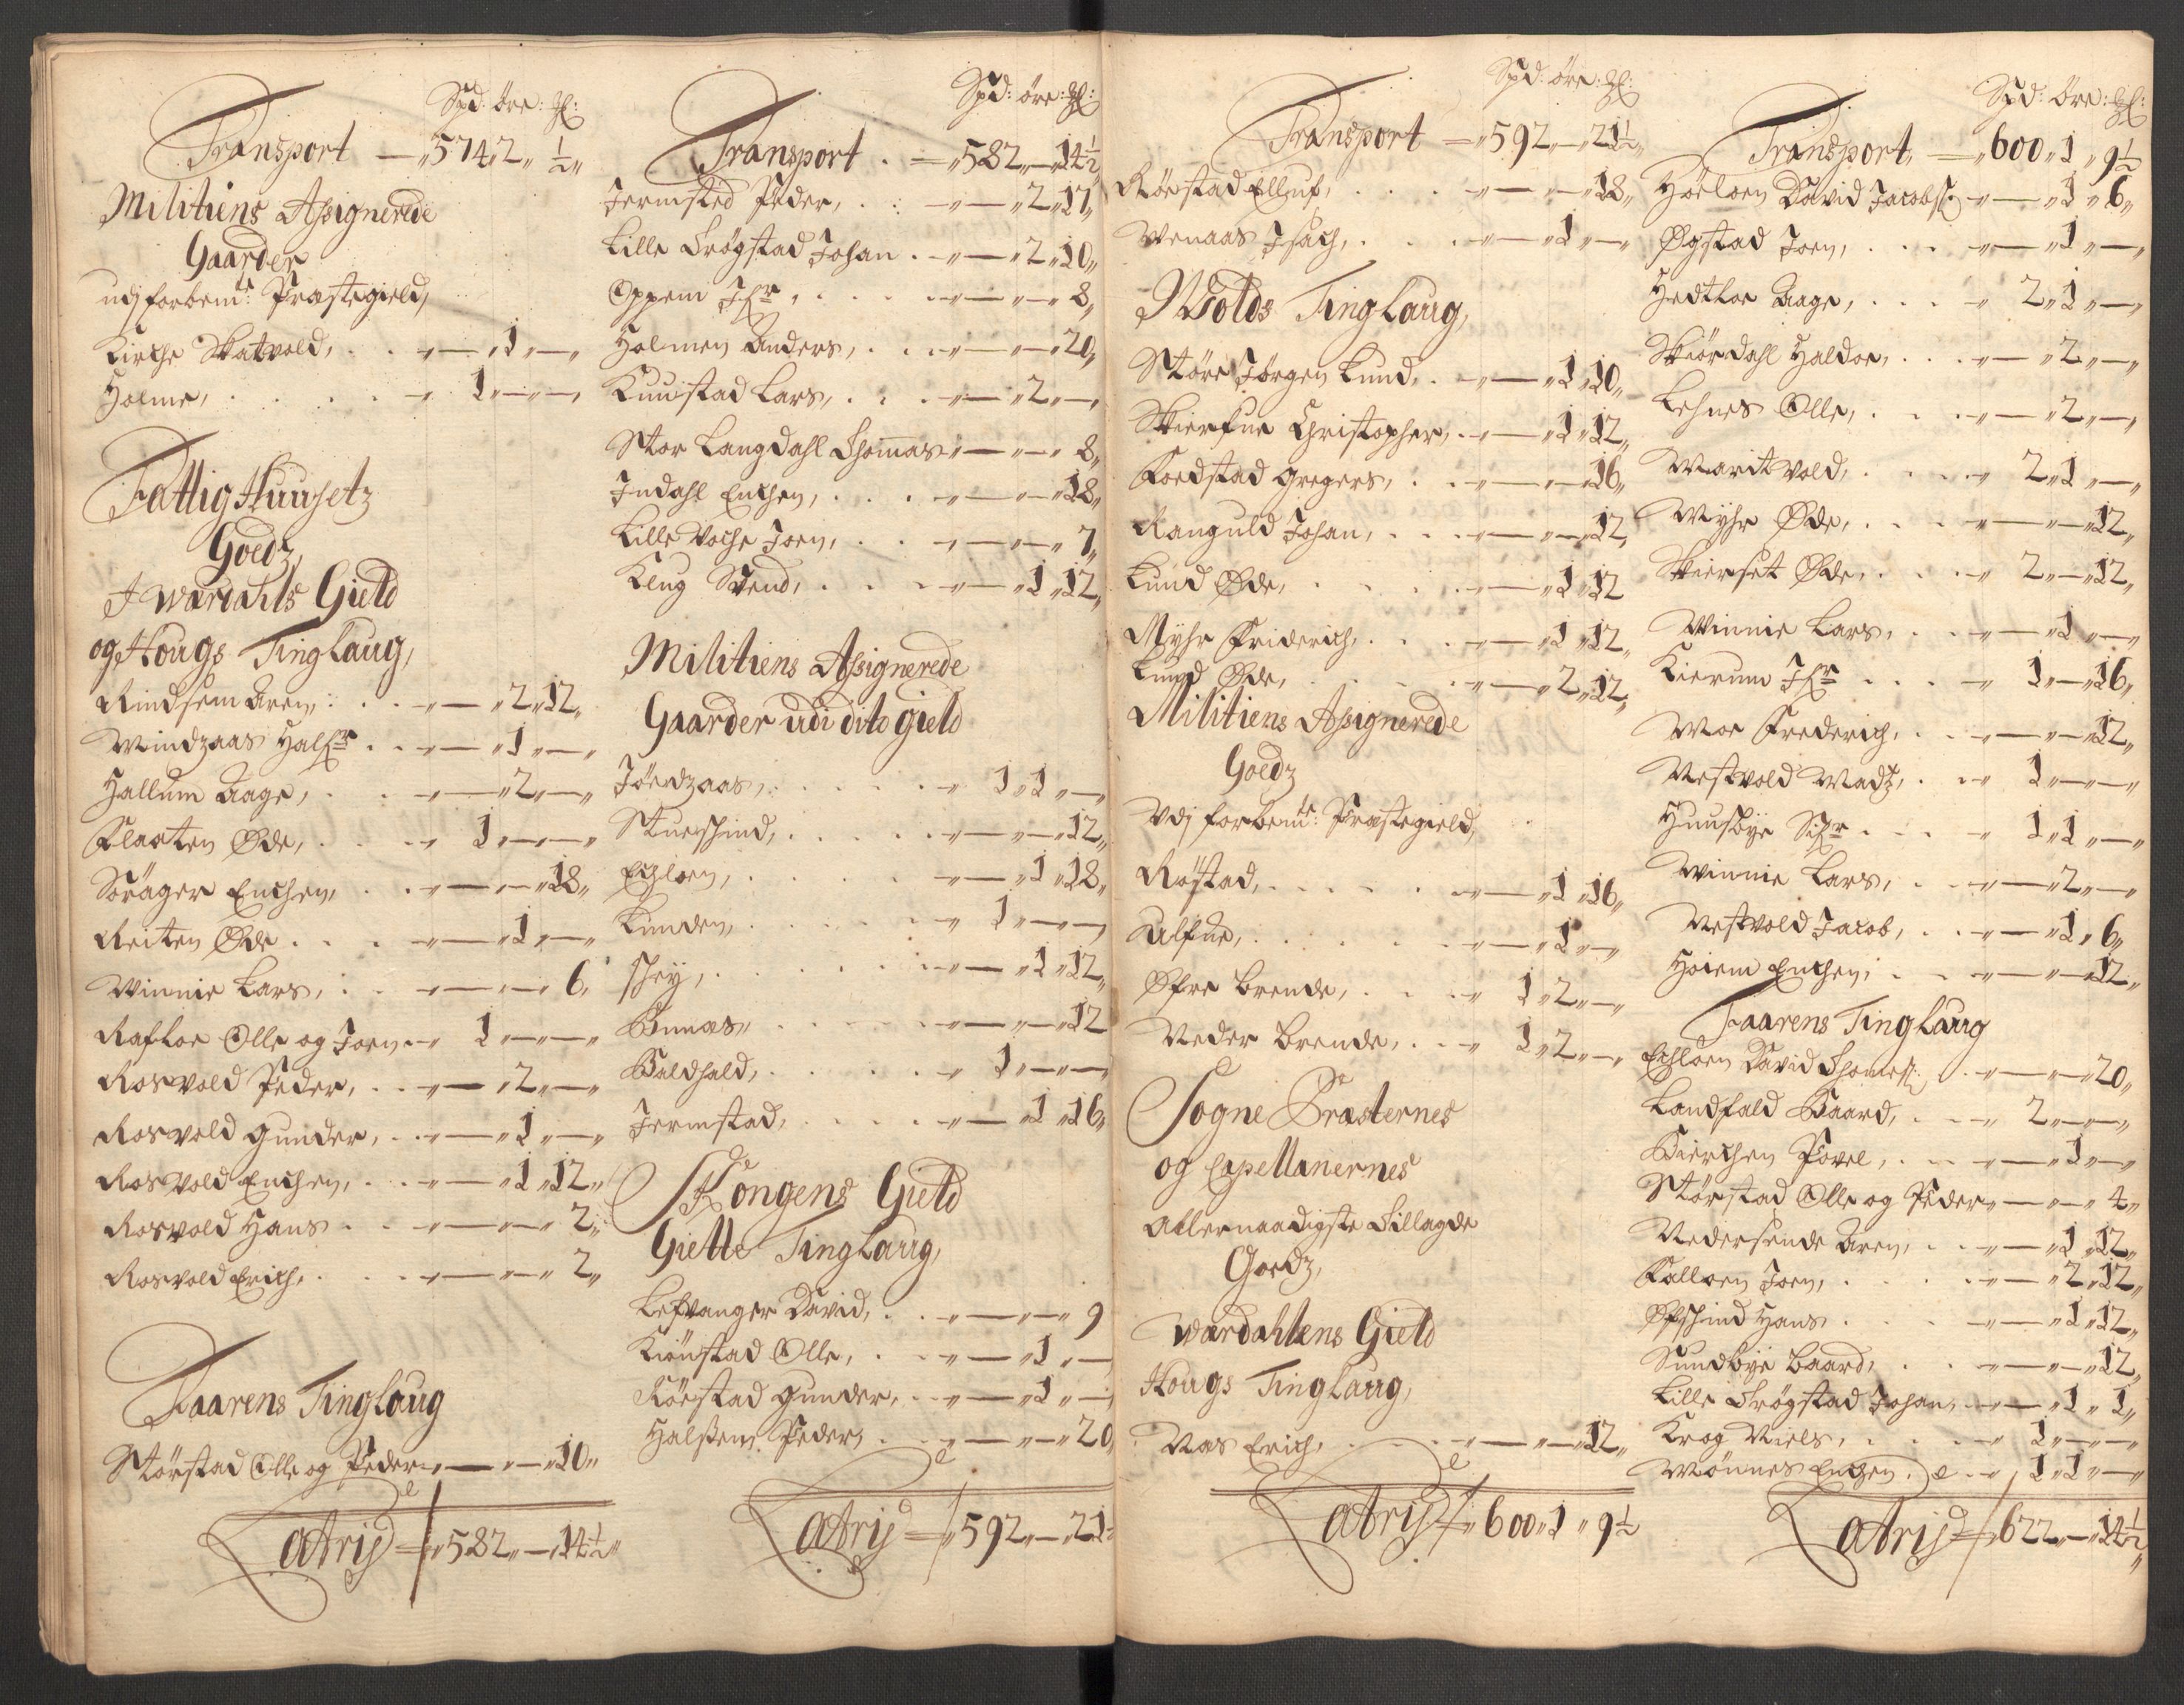 Spd: öre: Ql:
Transport — „ 574 „ 2 „ ½ „
Militiens Assignerede
Gaarder
udj forbemte: Præstegield,
Kirche Skatvold, . . „ — „ 1 „ — „
Holme, . . . . „ 1 „ — „ — „
Fattig Huusetz
Goedz,
I Wardahls Gield
og Hougs Tinglaug,
Rindsem Aren, . . „ — „ 2 „ 12 „
Windzaas Halfr . . „ — „ 1 „ — „
Hallum Aage, . . „ — „ 2 „ — „
Flaaten Øde, . . „ 1 „ — „ — „
Soråger Enchen, . . „ — „ — „ 18 „
Reiten Øde . . . „ — „ 1 „ — „
Winnie Lars, . . „ — „ — „ 6 „
Rafloe Olle og Joen „ 1 „ — „ — „
Rosvold Peder, . . „ — „ 2 „ — „
Rosvold Gunder, . . „ — „ 1 „ — „
Rosvold Enchen, . . „ — „ 1 „ 12 „
Rosvold Hans . . „ — „ — „ 2 „
Rosvold Erich, . . „ — „ — „ 2 „
Faarens Tinglaug
Störstad Olle og Peder „ — „ — „ 10 „
Latris = „ 582 „ — „ 14½ „
Spd: öre: Ql:
Transport . = „ 582 „ — „ 14½
Jermsted Peder, . . „ — „ 2 „ 17 „
Lille Trøgstad Johan . „ — „ 2 „ 10 „
Oppem Ifr, . . . „ — „ — „ 8 „
Holmen Anders, . . „ — „ — „ 20 „
Kuustad Lars, . . „ — „ 2 „ — „
Stor Langdahl Thomas „ — „ — „ 8 „
Indahl Enchen, . . „ — „ — „ 18 „
Lille Woche Joen, . . „ — „ — „ 7 „
Klug Svend, . . . „ — „ 1 „ 12 „
Militiens Assignerede
Gaarder udi dito gield
Jöedzaas, . . . . „ 1 „ 1 „ — „
Stuerschind, . . . „ — „ — „ 12 „
Echloen, . . . . „ — „ 1 „ 18 „
Lunden, . . . . „ 1 „ — „ — „
schey, . . . . „ — „ 1 „ 12 „
Bunæs, . . . . „ — „ — „ 12
Baldhald, . . . . „ 1 „ — „ — „
Jermstad, . . . . „ — „ 1 „ 16 „
Kongens Gield
Gielte Tinglaug,
Lefvanger David, . . „ — „ — „ 9
Kiönstad Olle, . . „ — „ 1 „ —
Röestad Gunder, . . „ — „ 1 „ —
Halßem Peder, . . „ — „ — „ 20 „
Latris = „ 592 „ — „ 21½
Spd: öre: Ql:
Transport = „ 592 „ — „ 21½ „
Röestad Elluf, . . . „ — „ — „ 18 „
Wenaas Isach, . . . „ — „ 1 „ — „
Wolds Tinglaug,
Störe Jörgen Lund, . „ — „ 1 „ 10 „
Skierfue Christopher, . „ — „ 1 „ 12 „
Foedstad Gregers, . . „ — „ — „ 16 „
Ranguld Johan, . . . „ — „ — „ 12 „
Lund Øde, . . . . „ — „ 1 „ 12
Myhr Friderich, . . . „ — „ 1 „ 12 „
Lund Øde, . . . . „ — „ 2 „ 12 „
Militiens Assignerede
Goedz
Udj forbemte: Præstegield,
Röstad, . . . . . „ — „ 1 „ 16 „
Alfue, . . . . . „ — „ 1 „ — „
Øfre Brende, . . . „ 1 „ 2 „ — „
Neder Brende, . . . „ 1 „ 2 „ — „
Sogne Præsternes
og Capellanernes
allernaadigste Tillagde
Goedz,
Wardahlens Gield
Hougs Tinglaug,
Næs Erich, . . . . „ — „ — „ 12 „
Latris = „ 600 „ 1 „ 9½
Spd: Öre: Ql:
Transport, = „ 600 „ 1 „ 9½
Höeloen David Jacobss: „ — „ 1 „ 6 „
Øgstad Joen, . . . „ — „ 1 „ — „
Hedtloe Aage, . . . „ 2 „ 1 „ — „
Skiördahl Haldoe, . . „ — „ 2 „ — „
Lehnes Olle, . . . „ — „ 2 „ — „
Maritvold, . . . „ 2 „ 1 „ — „
Myhr Øde, . . . „ — „ — „ 12 „
Skierset Øde, . . . „ 2 „ — „ 12 „
Winnie Lars, . . . „ — „ 1 „ — „
Kierum Ifr . . . „ 1 „ — „ 16 „
Moe Frederich, . . „ — „ — „ 12 „
Westvold Madz, . . „ 1 „ — „ — „
Huusbye Sifr . . . „ 1 „ 1 „ — „
Winnie Lars, . . „ — „ 2 „ — „
Westvold Jacob, . . „ — „ 1 „ 6 „
Hoiem Enchen, . . „ — „ — „ 12 „
Faarens Tinglaug
Echloen David Thomess: . „ — „ — „ 20 „
Landfald Baard, . . „ 2 „ — „ — „
Bierchen Povel, . . „ — „ 1 „ — „
Störstad Olle og Peder „ — „ — „ 4 „
Nedersende Aren, . . „ — „ 1 „ 12 „
Falloen Joen, . . . „ — „ 2 „ 12 „
Øfschind Hans . . . „ — „ 1 „ 12 „
Sundbye Baard, . . „ — „ — „ 12 „
Lille Trøgstad Johan, „ — „ 1 „ 1 „
Krog Niels, . . . „ 1 „ — „ — „
Mönnes Enchen . . „ 1 „ 1 „ — „
Latris = „ 622 „ — „ 14½ „